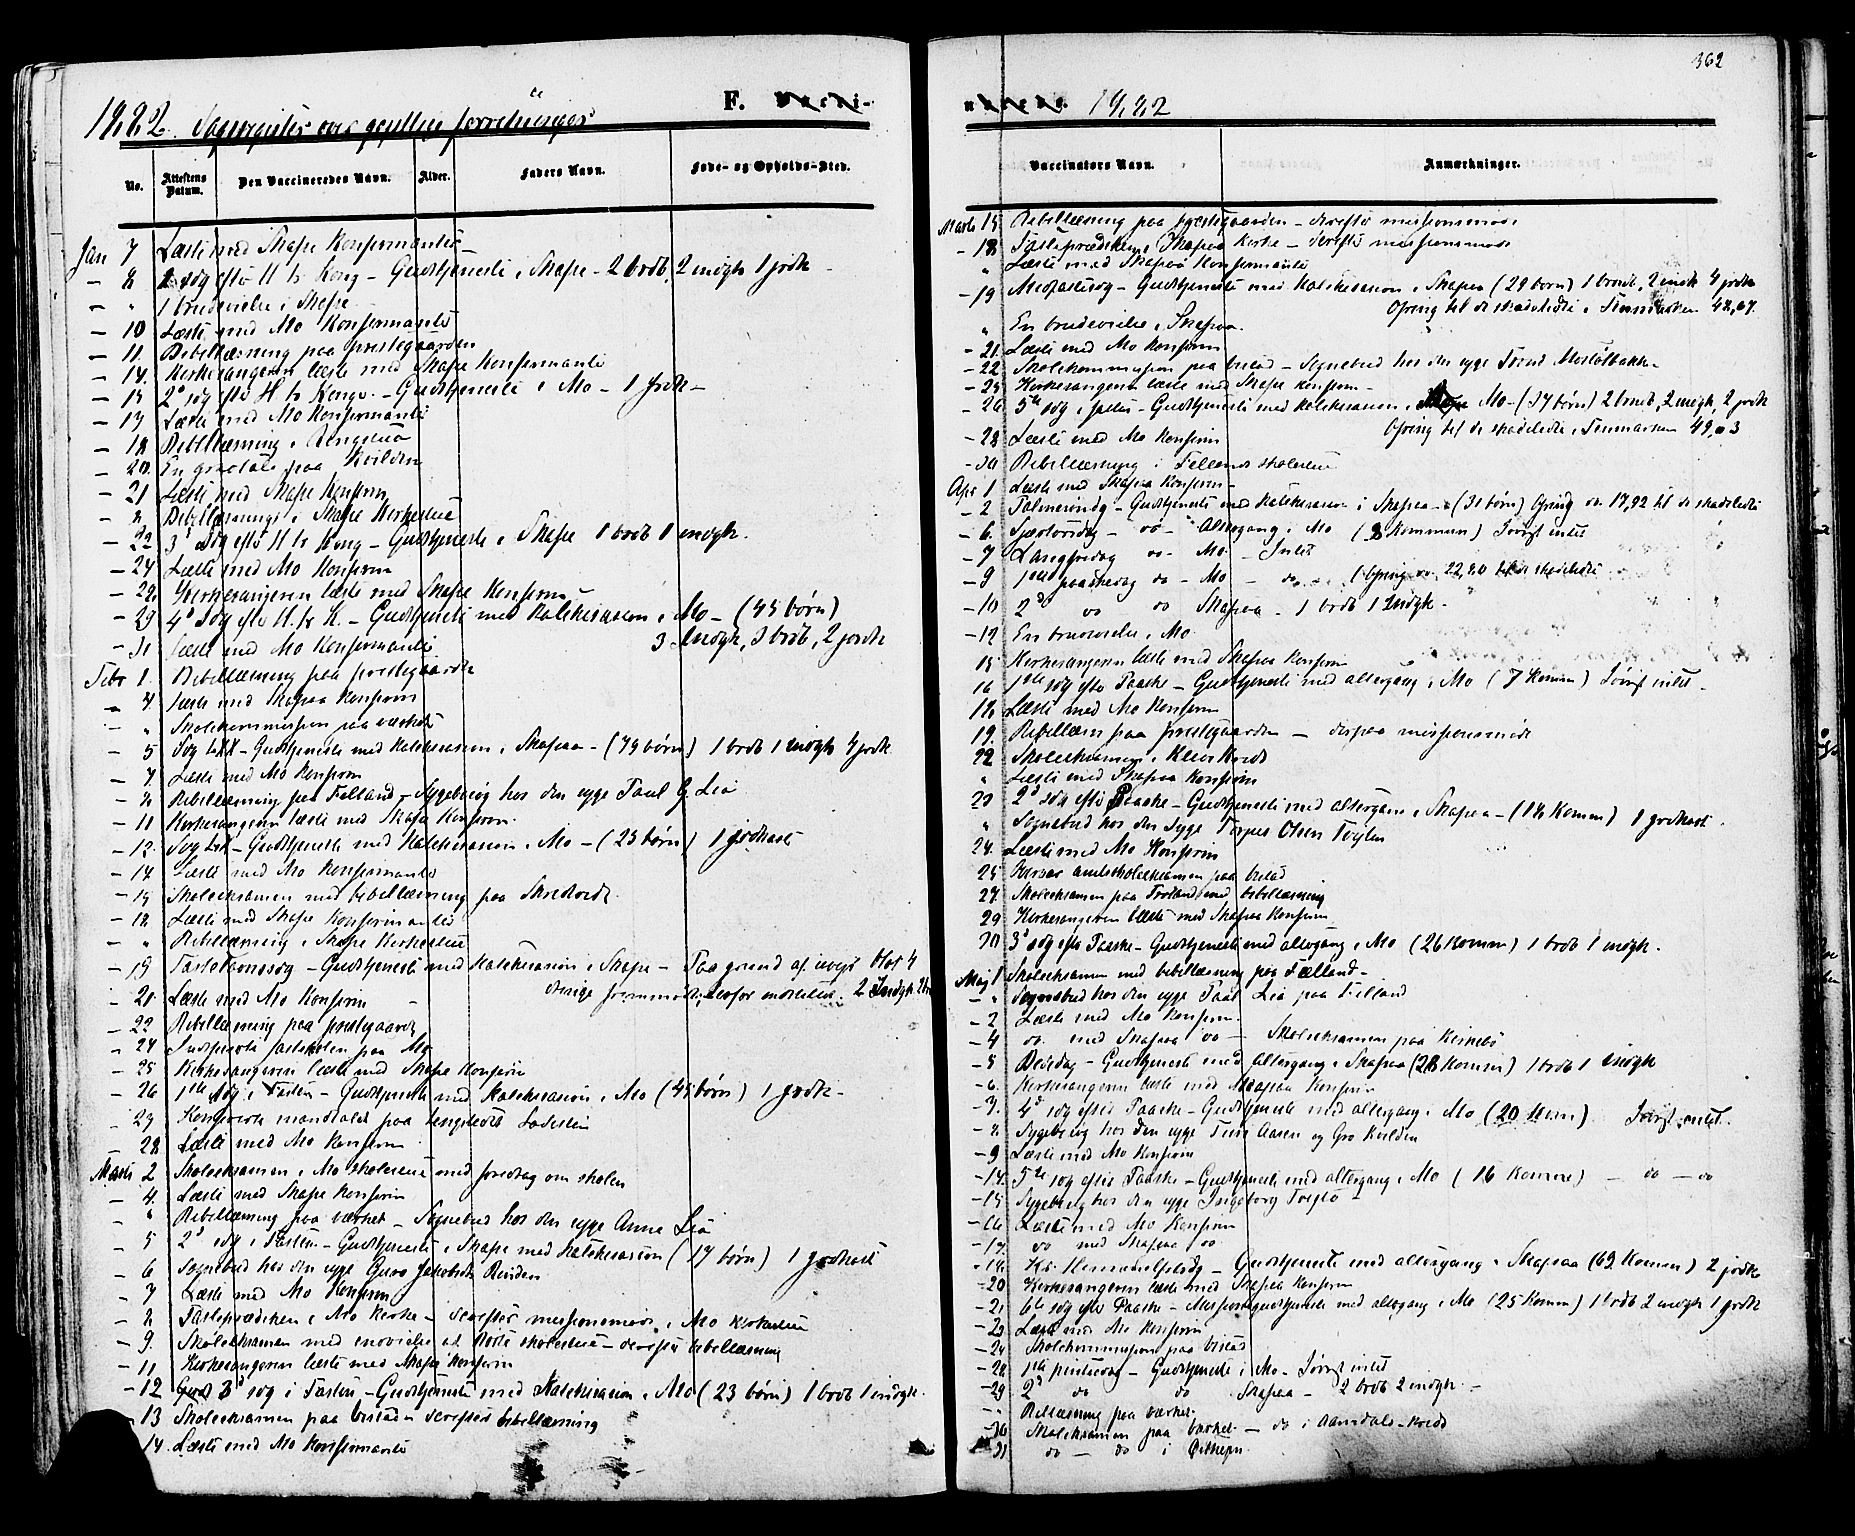 362
1882. Dagregister over geistlige forretninger
F. Vacci-
nerede. 1882
No.
Attestens Datum.
Den Vaccineredes Navn.
Alder.
Faders Navn.
Føde- og Opholds-Sted.
Jan 7 Læste med Skafse Konfirmanter
- 8 søg efter H tr Kong - Gudstjeneste i Skafse - 2 brdb, 2 indgk 1 jordk -
- " 1 brudevielse i Skafse
- 10 Læste med Mo Konfirmanter
- 11. Bibellæsning paa prestegaarden
- 14. Kirkesangeren læste med Skafse Konfirmante
- 15 2d søg efter H tr Konge. - Gudstjeneste i Mo - 1 jordk -
- 17 Læste med Mo Konfirmante
- 18 Bibellæsning i
- 20. En paa Kvilden
- 21 Læste med Skafse Konfirm
- " Bibellæsning i Skafse Kirkestue
- 22 3d søg efter H tr Kong - Gudstjeneste i Skafse 1 brdb 1 indgk.
- 24 Læste med Mo Konfirm
- 28. Kirkesangeren læste med Skafse Konfirm -
- 29 4d søg efter H. tr K. - Gudstjeneste med Katekisasion i Mo - (45 børn)
3 Indgk, 3 brdb, 2 jordk
- 31 Læste med Mo Konfirmante
Febr 1. Bibellæsning paa prestegaarde
- 4. Læste med Skafsaa Konfirm
- " Skolekommission paa værket
- 5 Søg LXX - Gudstjeneste med Katekisasion i Skafsaa - (79 børn) 1 brdb 1 indgk 4 jordk
- 7 Læste med Mo Konfirm
- 8 Bibellæsning paa Felland - Sygebesøg hos den syge Paul G. Lia
- 11 Kirkesangeren læste med Skafse Konfirm.
- 12. Søg LX - Gudstjeneste med Katekisasion i Mo - (23 børn) 1 jordkast
- 14 Læste med Mo Konfirmante
- 15 Skoleeksamen med bibellæsning paa
- 18 Læste med Skafse Konfirmantes
- " Bibellæsning i Skafse Kirkestue
- 19 Fastelavnssøg - Gudstjeneste med Katekisasion i Skafse - Paa grund af uvejr blot 4
2 Indgk
- 21 Læste med Mo Konfirm
- 22 Bibellæsning paa prestegaarde
- 24 Inspicerte fastskolen paa Mo
- 25 Kirkesangeren læste med Skafse Konfirm
- 26 1ste søg i Fasten - Gudstjeneste med Katekisasion i Mo (45 børn) 1 jordk -
- 27 Konfererte mandtallet paa
- 28 Læste med Mo Konfirm
Marts 2 Skoleeksamen i Mo skolestue med foredrag om skolen
- 4. Læste med Skafse Konfirm
- " Bibellæsning paa værket - Sognebud hos den syge Anne Lia
- 5 2d søg i Fasten - Gudstjeneste i Skafse med Katekisasion (17 børn) 1 jordkast
- 6 Sognebud hos den syge Guro Jakobsdt Rinden
- 7 Læste med Mo Konfirm
- 8 Fasteprædiken i Mo Kirke - derefter missionsmøde i Mo Kirkestue
- 9. Skoleeksamen med indvielse af skolestue - derefter bibellæsning
- 11 Kirkesangeren læste med Skafse Konfirm
- 12 3d søg i Fasten - Gudstjeneste med Katekisasion i Mo (23 børn) 1 brdb 1 indgk.
- 13 Skoleeksamen paa bistaden derefter bibellæsning
14. Læste med Mo Konfirmante
Vaccinators Navn.
Anmærkninger.
Marts 15 Bibellæsning paa prestegaarden - derefter missionsmøde
- 18 Fasteprædiken i Skafsaa Kirke - derefter missionsmøde
" Læste med Skafsaa Konfirmante
- 19 Midfastesøg - Gudstjeneste med Katekisasion i Skafsaa (29 børn) 1 brdb, 2 indk 4 jordk
Ofring til de skadelidte i Finmarken 48,67.
" En brudevielse i Skafsaa.
- 21. Læste med Mo Konfirm
- 22 Skolekommission paa bistad - Sognebud hos den syge Mostølbakke -
- 25 Kirkesangeren læste med Skafse Konfirm -
- 26 5te søg i fasten - Gudstjeneste med Katekisasion i Mo - (37 børn) 2 brdb, 2 indgk, 2 jordk
Ofring til de skadelidte i Finmarken 49,03
- 28 Læste med Mo Konfirm
- 30 Bibellæsning i Fellands skolestue
Apr 1 Læste med Skafsaa Konfirm -
- 2 Palmesøndg - Gudstjeneste med Katekisasion i Skafsaa - (31 børn) Ofring 17,92 til de skadelidte
- 6. Skjærtorsdg - do - Altergang i Mo (8 Kommun) Forøvrigt intet
- 7 Langfredag do - Mo - Intet
- 9 1ste paaskedag do - Mo - do - Ofring 22,80 til de skadelidte
- 10 2d do do Skafsaa - 1 brdb 1 indgk.
- 12 En brudevielse i Mo
15 Kirkesangeren læste med Skafsaa Konfirm
16 1ste søg efter Paaske - Gudstjeneste med altergang i Mo (7 Komun) Forøvrigt intet -
18 Læste med Mo Konfirm
19. Bibellæsn paa prestegaarden - derpaa missionsmøde
22 Skoleeksamen i
" Læste med Skafsaa Konfirm
23 2d søg efter Paaske - Gudstjeneste med altergang i Skafsaa - (18 Komun) 1 jordkast.
" Sognebud hos den syge Torjus Olsen
24. Læste med Mo Konfirm
25 amtsskoleeksamen paa bistad
27. Skoleeksamen paa med bibellæsning
29 Kirkesangeren læste med Skafsaa Konfirm
30 3d søg efter Paaske - Gudstjeneste med altergang i Mo (26 Komun) 1 brdb 1 indgk.
Maj 1 Skoleeksamen med bibellæsning paa Fælland -
- " Sognebud hos den syge Paal Lia paa Felland
- 2 Læste med Mo Konfirm -
- 4 do. med Skafsaa do - Skoleeksamen paa
- 5 Bededag - Gudstjeneste med altergang i Skafsaa (28 Komun) 1 brdb 1 indgk
- 6 Kirkesangeren læste med Skafsaa Konfirm
- 7. 4d søg efter Paaske - Gudstjeneste med altergang i Mo (20 Kom) Forøvrigt intet.
- 8 Sygebesøg hos den syge Aasen og Gro Kvilden
- 9 Læste med Mo Konfirm
- 14. 5te søg efter Paaske - Gudstjeneste med altergang i Mo (16 Komm) - do - do
- 15 Sygebesøg hos den syge Ingeborg
- 16 Læste med Mo Konfirm
- 17. do med Skafsaa do
- 18. Kr. Himmelfdg - Gudstjeneste med altergang i Skafsaa (63 Komun) 2 jordk
- 20 Kirkesangeren læste med Skafsaa Konfirm
- 21 6te søg efter Paaske - Missionsgudstjeneste med altergang i Mo (25 Komm) 1 brdb 2 indgk 1 jordk
- 23 Læste med Mo Konfirm
- 24 Skolekommission paa bistad
- 28 1ste pintsedag - Gudstjeneste i Mo - Forøvrigt intet
- 29 2d do do Skafsaa - 2 brdb 2 indgk -
- " Bibellæsning paa værket
- 30 Skoleeksamen paa værket - do i Aamdals-Kreds
- 31 do - do i